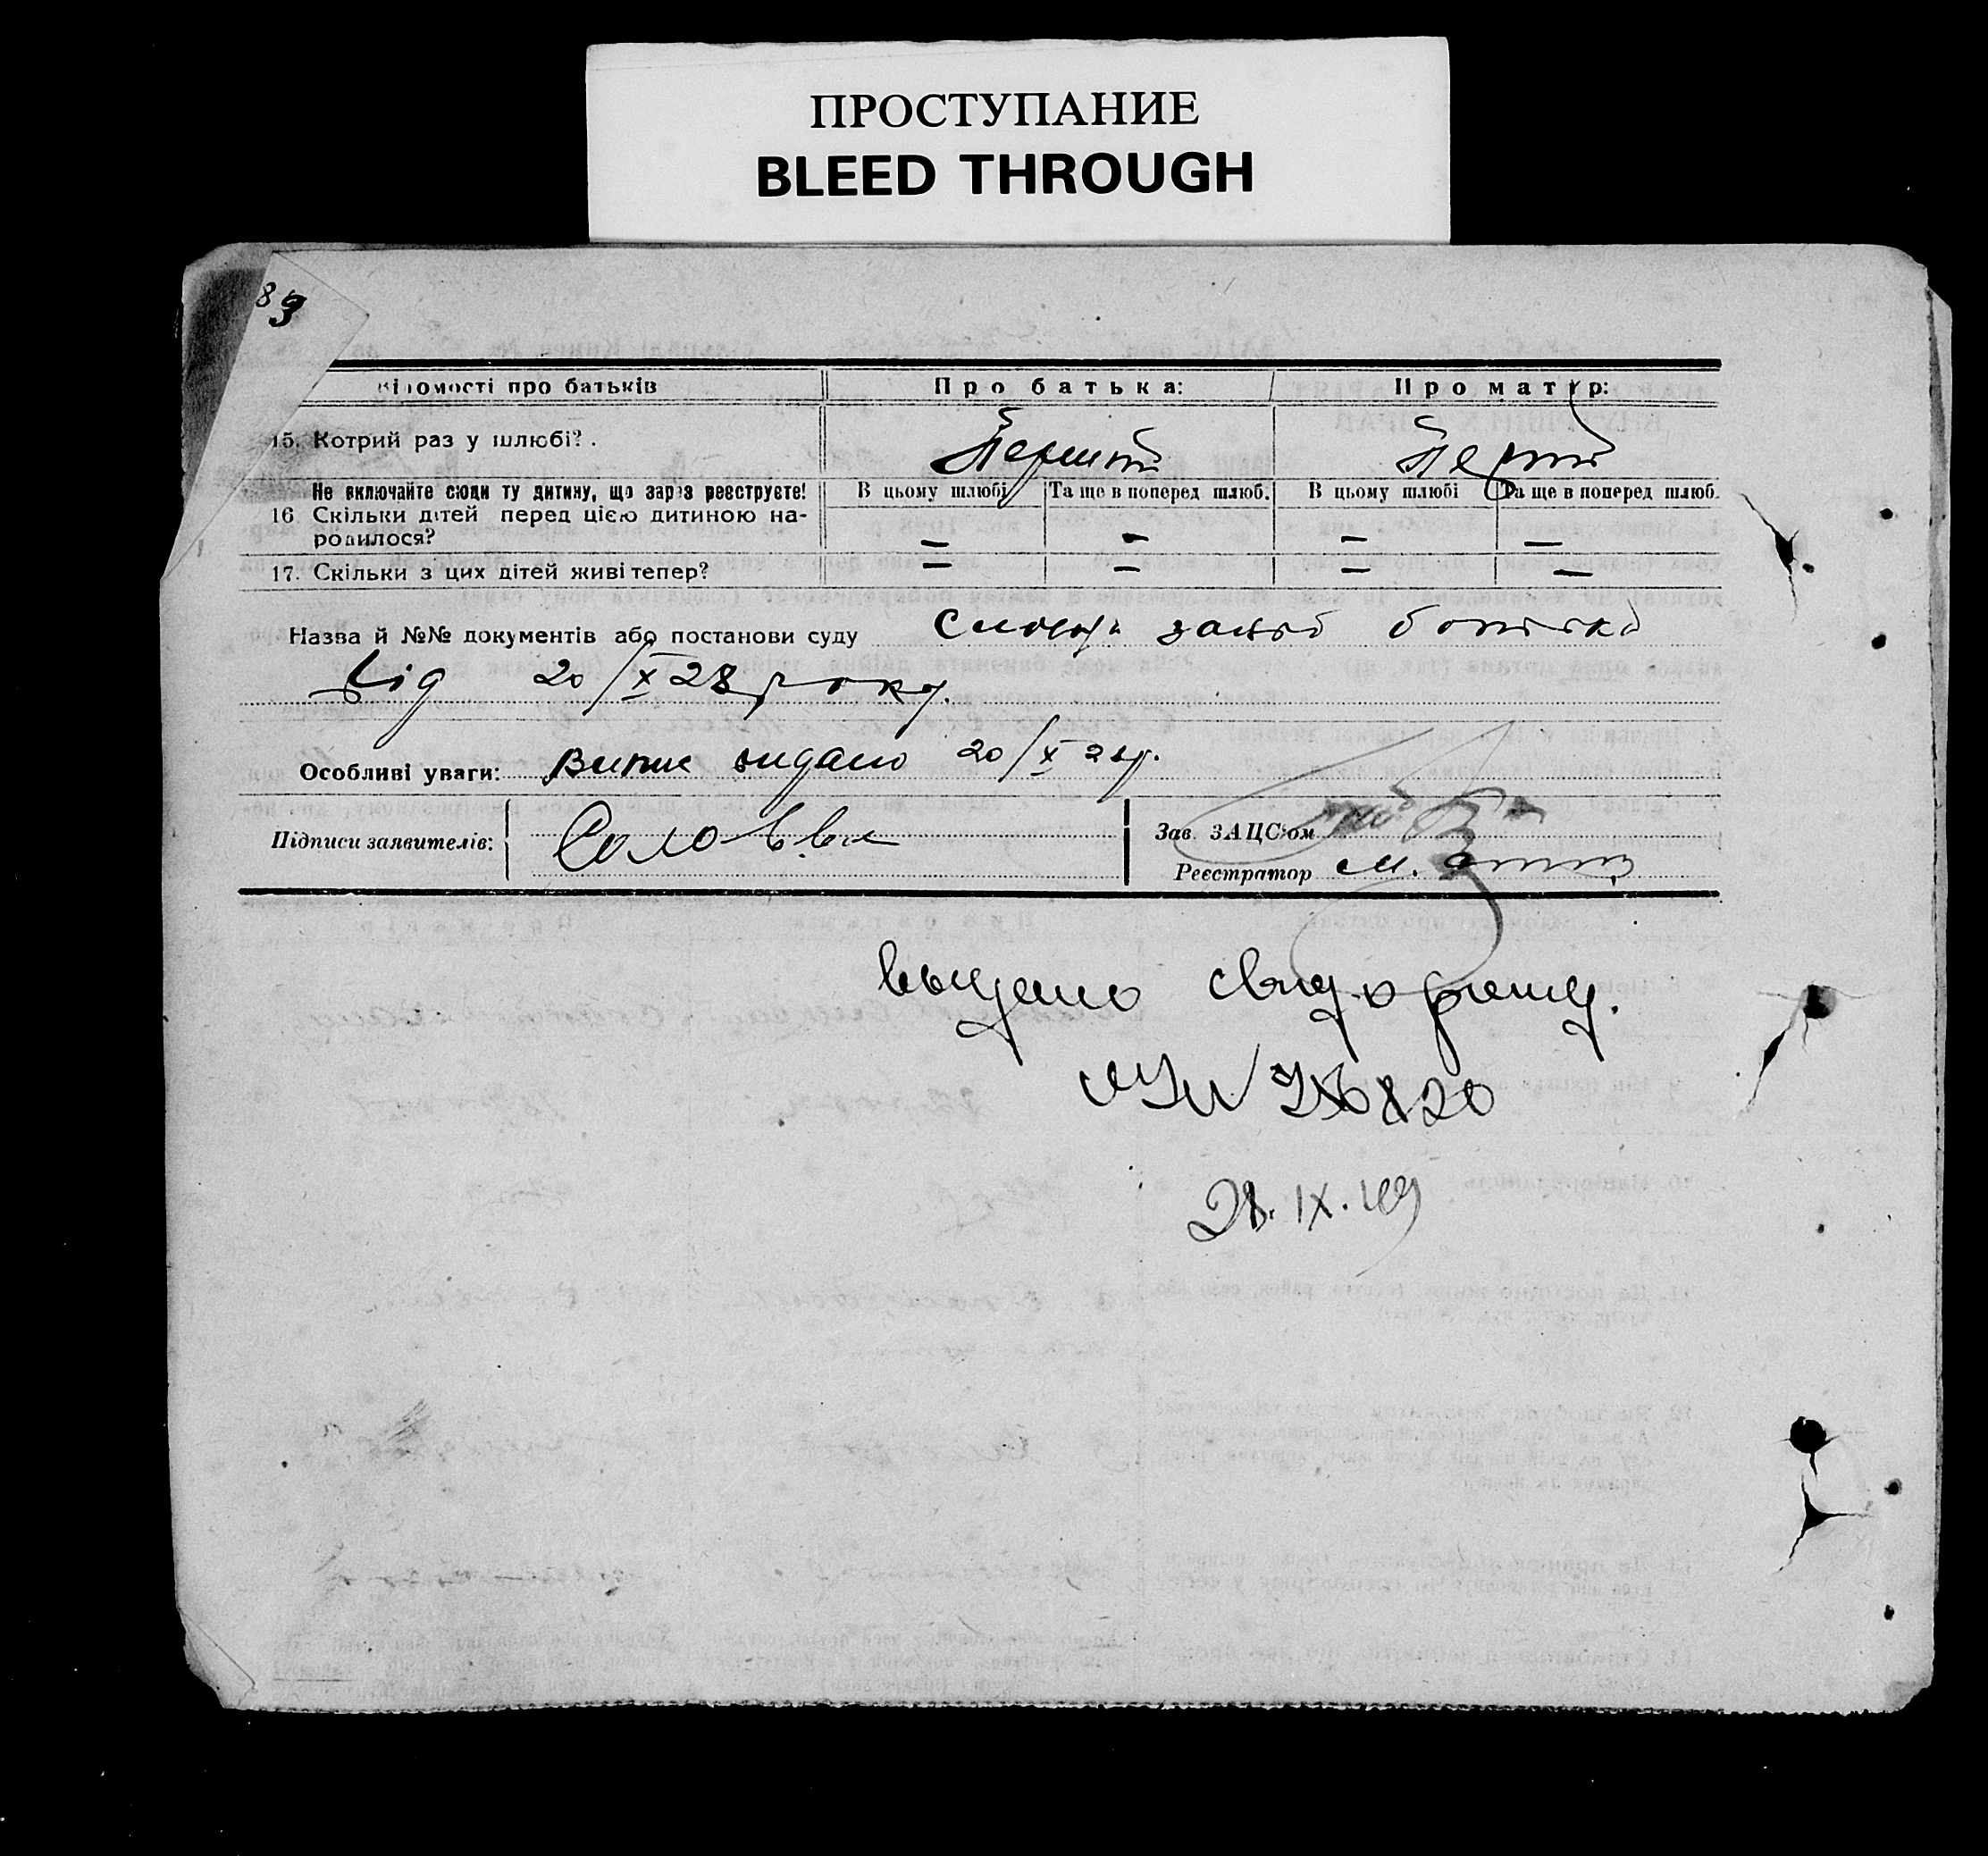 ПРОСТУПАНИЕ
BLEED THROUGH
83
Відомості про батьків Про батька: Про матір:
15. Котрий раз у шлюбі? . Перший Перший
Не включайте сюди ту дитину, що зараз реєструєте! В цьому шлюбі Та ще в поперед шлюб. В цьому шлюбі Та ще в поперед шлюб.
16 Скільки дітей перед цією дитиною на-
родилося? — — — —
17. Скільки з цих дітей живі тепер? — — — —
Назва й №№ документів або постанови суду заява батька
від 20/X 28 року.
Особливі уваги: Випис видано 20/X 28 р.
Підписи заявителів: Зав. ЗАЦС'ом
Реєстратор М.
выдано свид. о рожд.
28. IX. 49